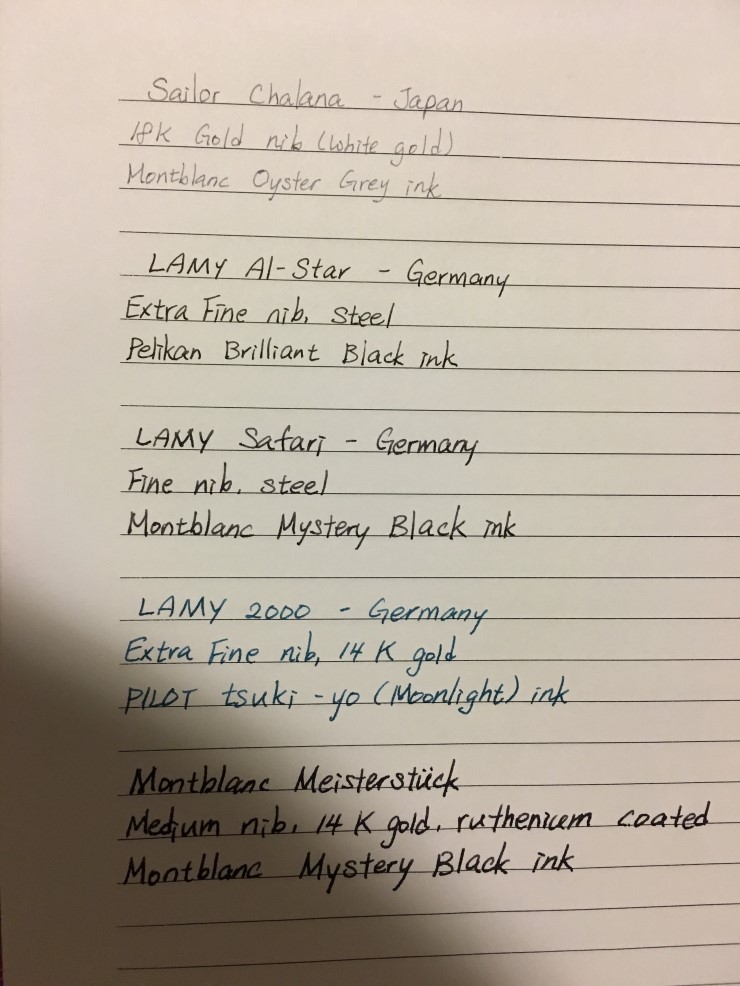 Sailor Chalana - Japan
18K Gold nib (White gold)
Montblanc Oyster Grey ink
LAMY Al-Star - Germany
Extra Fine nib, steel
Pelikan Brilliant Black ink
LAMY Safari - Germany
Fine nib, steel
Montblanc Mystery Black ink
LAMY 2000 - Germany
Extra Fine nib, 14 K gold
PILOT tsuki-yo (Moonlight) ink
Montblanc Meisterstück
Medium nib, 14 K gold, ruthenium coated
Montblanc Mystery Black ink